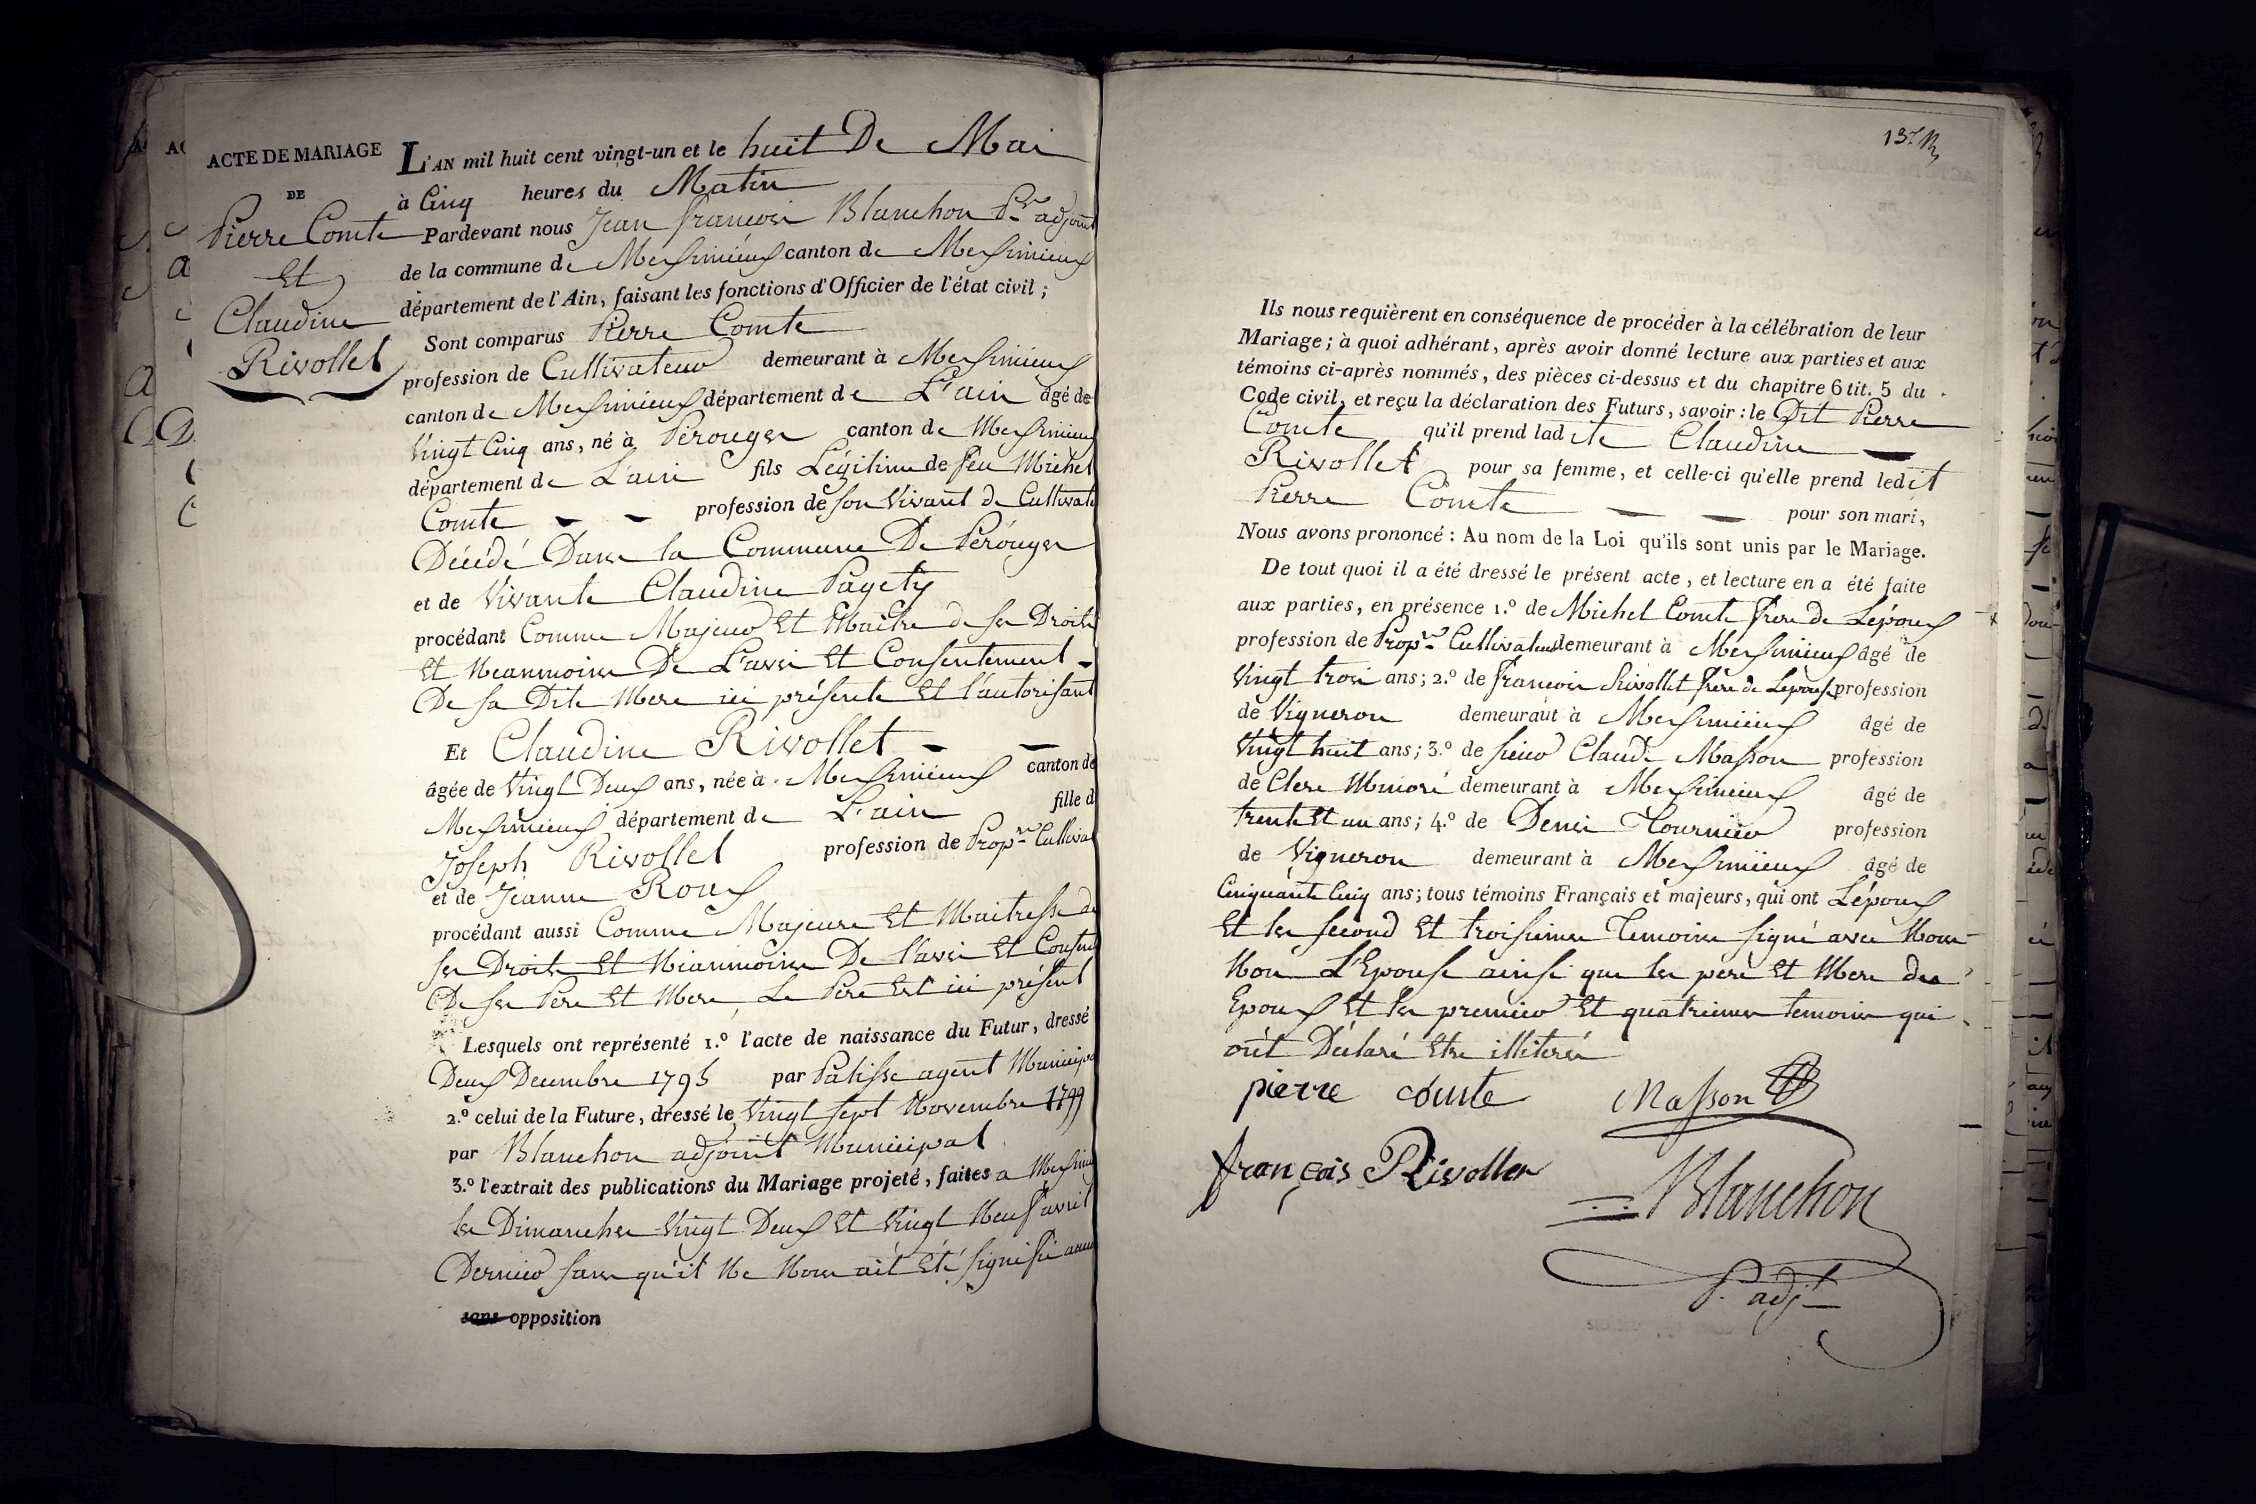 ACTE DE MARIAGE
DE
Pierre Comte
Et
Claudine
Rivollet
L'AN mil huit cent vingt-un et le huit De Mai
à Cinq heures du Matin
Pardevant nous Jean francois Blanchon Pr adjoint
de la commune de Meximieux canton de Meximieux
département de l'Ain, faisant les fonctions d'Officier de l'état civil ;
Sont comparus Pierre Comte
profession de Cultivateur demeurant à Meximieux
canton de Meximieux département de L'ain âgé de
Vingt Cinq ans, né à Pérouges canton de Meximieux
département de L'ain fils Légitime de feu Michel
Comte profession de son Vivant de Cultivate
Décédé Dans la Commune De Pérouges
et de Vivante Claudine Pagety
procédant Comme Majeur Et Maitre de ses Droits
Et Neanmoins De L'avis Et Consentement
De sa Dite Mere ici présente Et l'autorisant
Et Claudine Rivollet
âgée de Vingt Deux ans, née à Meximieux canton de
Meximieux département de L'ain fille d
Joseph Rivollet profession de Propre Cultivat
et de Jeanne Roux
procédant aussi Comme Majeure Et Maitresse de
ses Droits Et Néanmoins De l'avis Et Consent
De ses Pere Et Mere Le Pere Est ici présent
Lesquels ont représenté 1.º l'acte de naissance du Futur, dressé
Deux Decembre 1795 par Palisse agent Municipa
2.º celui de la Future, dressé le Vingt sept Novembre 1799
par Blanchon adjoint Municipal
3.º l'extrait des publications du Mariage projeté, faites a Meximieux
les Dimanches Vingt Deux Et Vingt Neuf avril
Dernier sans qu'il Ne Nous ait Eté signifié aucune
sans opposition
137
Ils nous requièrent en conséquence de procéder à la célébration de leur
Mariage ; à quoi adhérant, après avoir donné lecture aux parties et aux
témoins ci-après nommés, des pièces ci-dessus et du chapitre 6 tit. 5 du
Code civil, et reçu la déclaration des Futurs, savoir : le Dit Pierre
Comte qu'il prend ladite Claudine
Rivollet pour sa femme, et celle-ci qu'elle prend ledit
Pierre Comte pour son mari,
Nous avons prononcé : Au nom de la Loi qu'ils sont unis par le Mariage.
De tout quoi il a été dressé le présent acte, et lecture en a été faite
aux parties, en présence 1.º de Michel Comte frere de Lépoux
profession de Propre Cultivateur demeurant à Meximieux âgé de
Vingt trois ans ; 2.º de francois Rivollet frere de Lépouse profession
de Vigneron demeurant à Meximieux âgé de
Vingt huit ans ; 3.º de sieur Claude Masson profession
de Clerc Minoré demeurant à Meximieux âgé de
trente Et un ans ; 4.º de Denis Tournier profession
de Vigneron demeurant à Meximieux âgé de
Cinquante Cinq ans ; tous témoins Français et majeurs, qui ont L'époux
Et les second Et troisieme Temoins signé avec Nous
Non L'Epouse ainsi que les pere Et Mere des
Epoux Et les premier Et quatrieme temoins qui
ont Déclaré Etre illiterés
pierre comte Masson
françois Rivollet
Blanchon
P. adjt